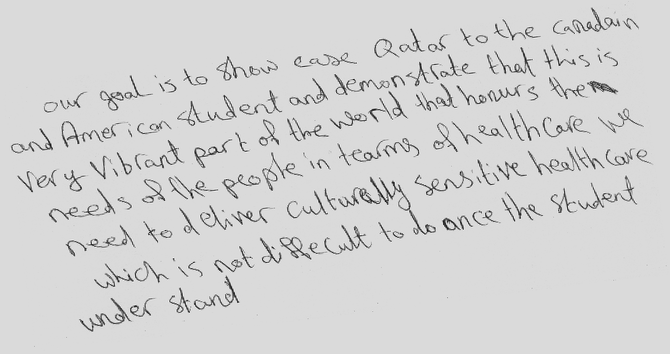 our goal is to show case Qatar to the canadain
and American student and demonstrate that this is
very Vibrant part of the world that honurs the
needs of the people in tearms of healthcare we
need to deliver culturally sensitive healthcare
which is not diffecult to do ance the student
under stand